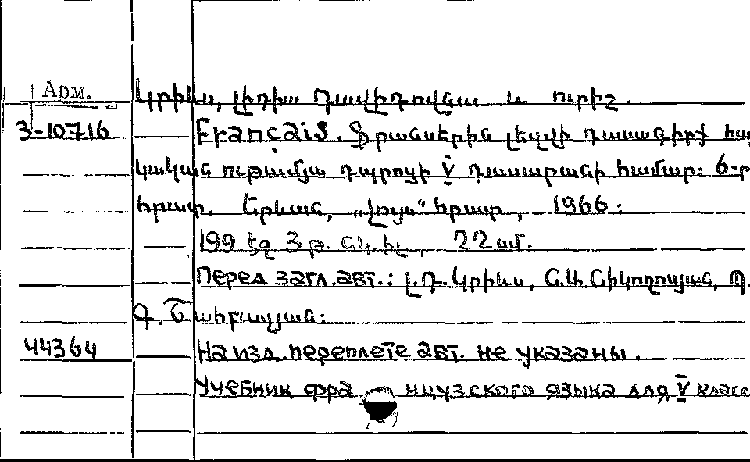 Арм.
Կրիևս, լիդիա Դավիդովնա և ուրիշ.
3-10716
Français. Ֆրանսերեն լեզվի դասագիրք հայ
կական ութամյա դպրոցի V դասարանի համար: 6-րդ
հրատ. Երևան, „Լույս“ հրատ, 1966:
199 էջ 3 թ. նկ. իլ., 22 սմ.
Перед загл. авт.: Լ.Դ. Կրիևս, Ն.Ա. Նիկողոսյան, Պ.
Գ. Շահբազյան:
44364
На изд. переплете авт. не указаны.
Учебник французского языка для V класс